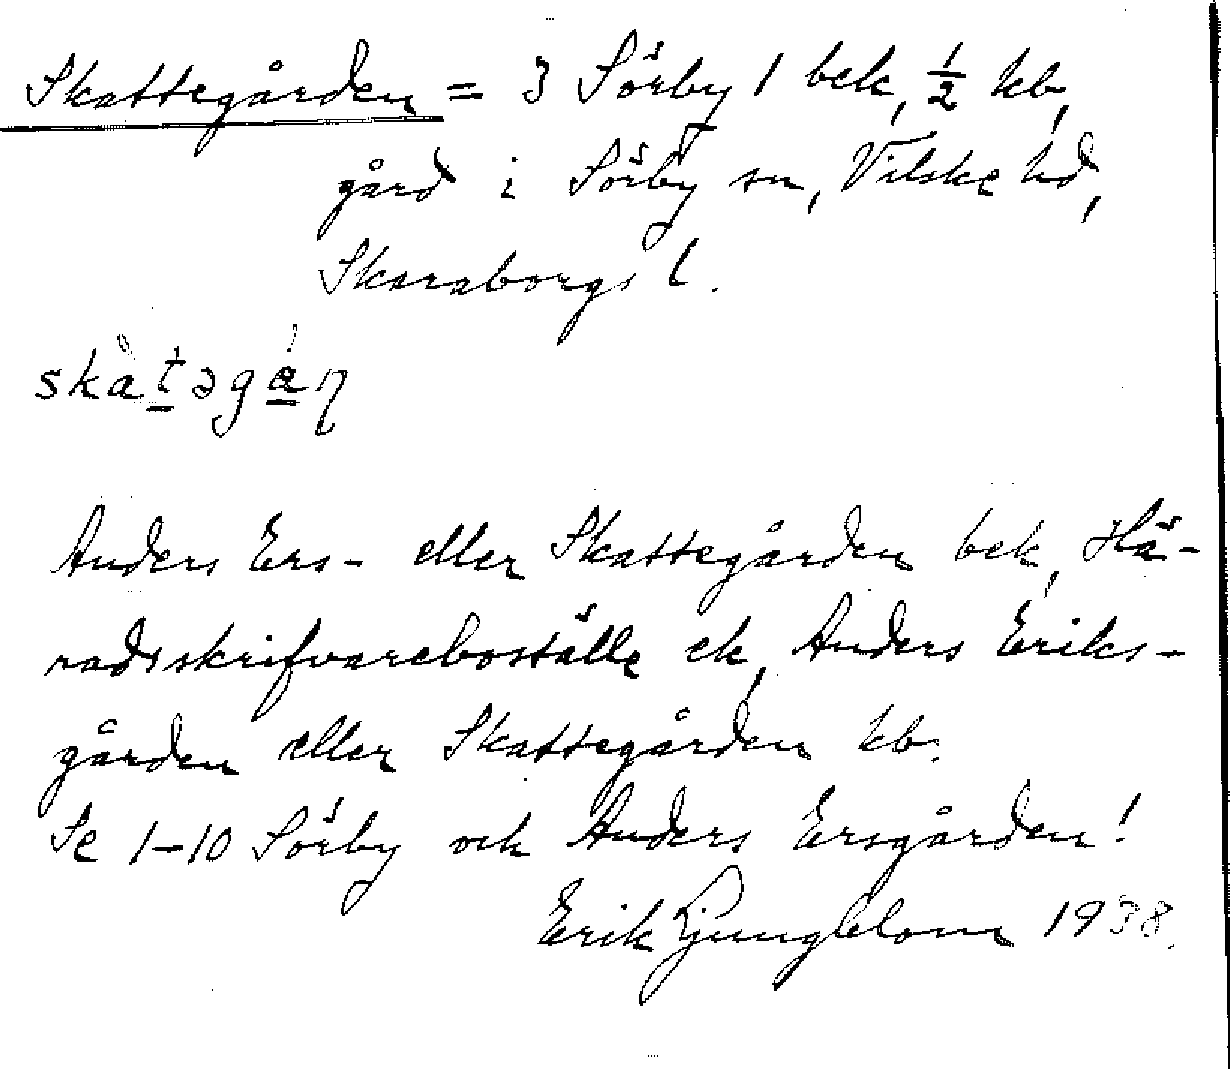 Skattegården = 3 Sörby 1 bek, 1/2 kb,
gård i Sörby sn, Vilske hd,
Skaraborgs l.
skȧt̲əga̲ṇ
Anders Ers- eller Skattegården bek, Hä-
radsskrifvareboställe ek, Anders Eriks-
gården eller Skattegården kb.
Se 1-10 Sörby och Anders Ersgården!
Erik Ljungblom 1938.